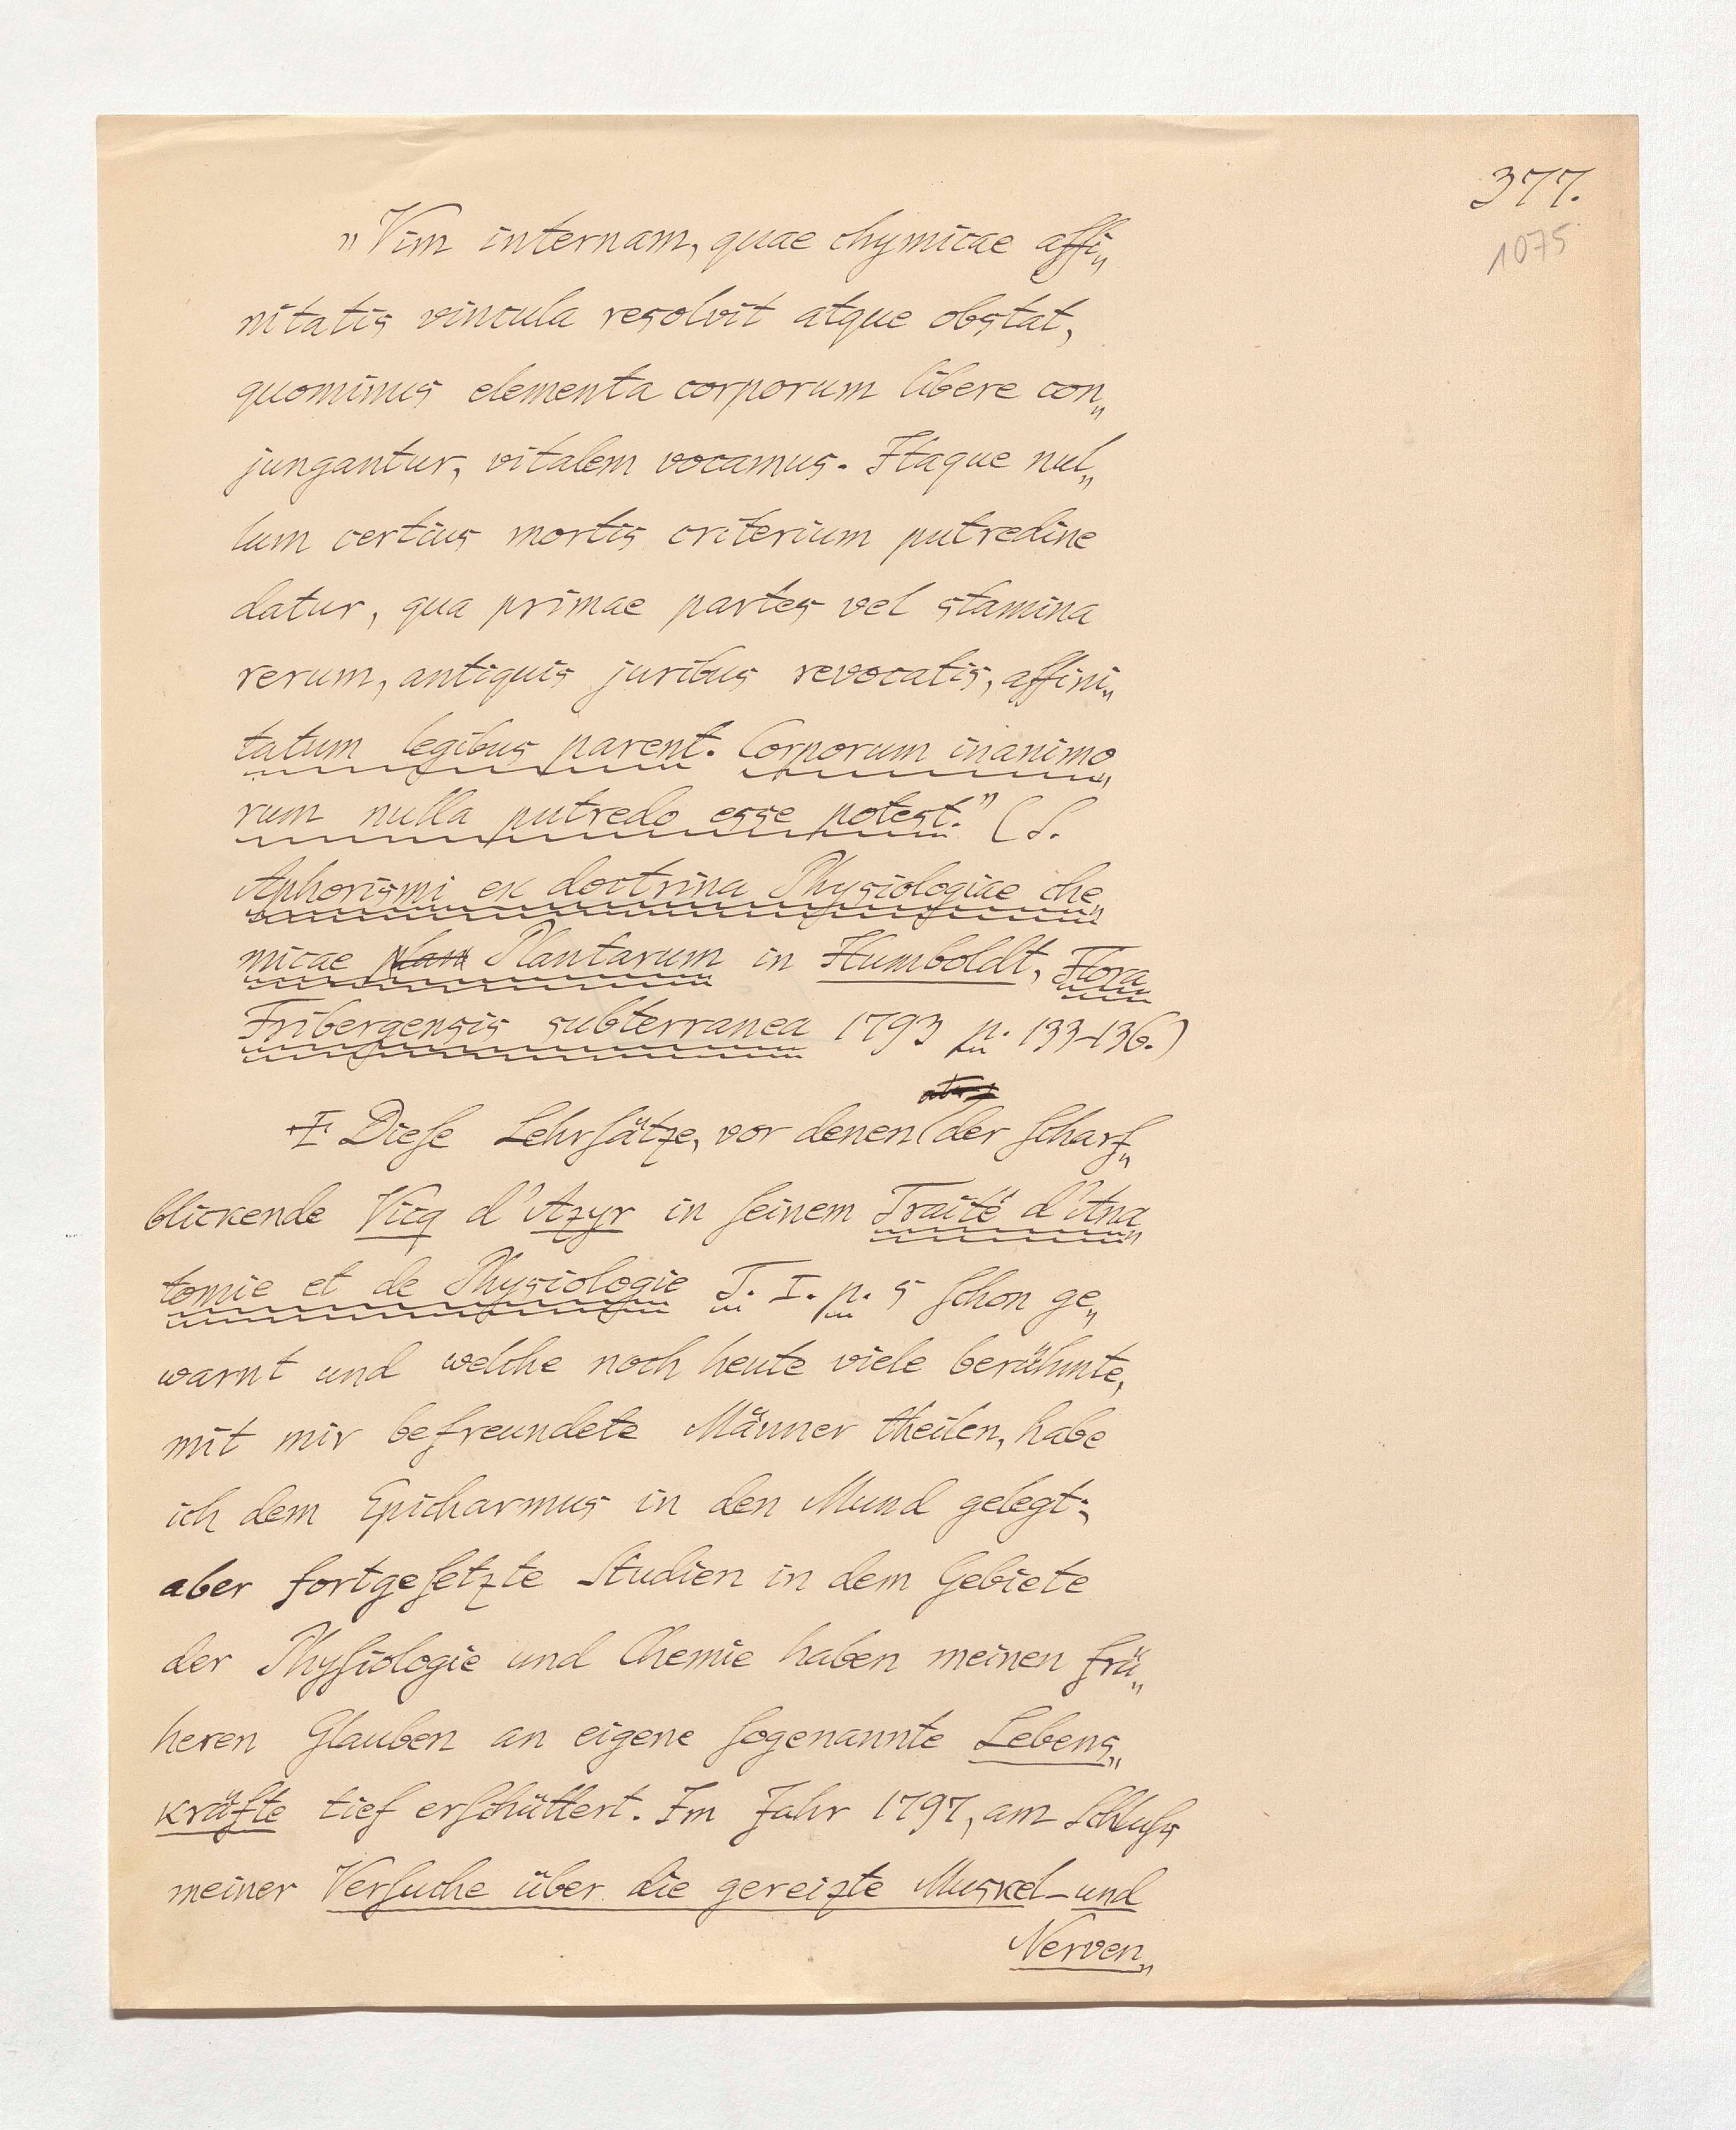 377.
1075
„Vim internam, quae chymicae affi„
nitatis vincula resolvit atque obstat,
quominus elementa corporum libere con„
jungantur, vitalem vocamus. Itaque nul„
lum certius mortis criterium putredine
datur, qua primae partes vel stamina
rerum, antiquis juribus revocatis, affini„
tatum legibus parent. Corporum inanimo„
rum nulla putredo esse potest.” (S.
Aphorismi ex doctrina Physiologiae che„
micae plan Plantarum in Humboldt, Flora
Fribergensis subterranea 1793 p. 133–136.)
Diese Lehrsätze, vor denen (der scharf„
blickende Vicq d'Azyr in seinem Traité d'Ana„
tomie et de Physiologie T. I. p. 5 schon ge„
warnt und welche noch heute viele berühmte,
mit mir befreundete Männer theilen, habe
ich dem Epicharmus in den Mund gelegt;
aber fortgesetzte Studien in dem Gebiete
der Physiologie und Chemie haben meinen frü„
heren Glauben an eigene sogenannte Lebens„
kräfte tief erschüttert. Im Jahr 1797, am Schluss
meiner Versuche über die gereizte Muskel- und
Nerven„